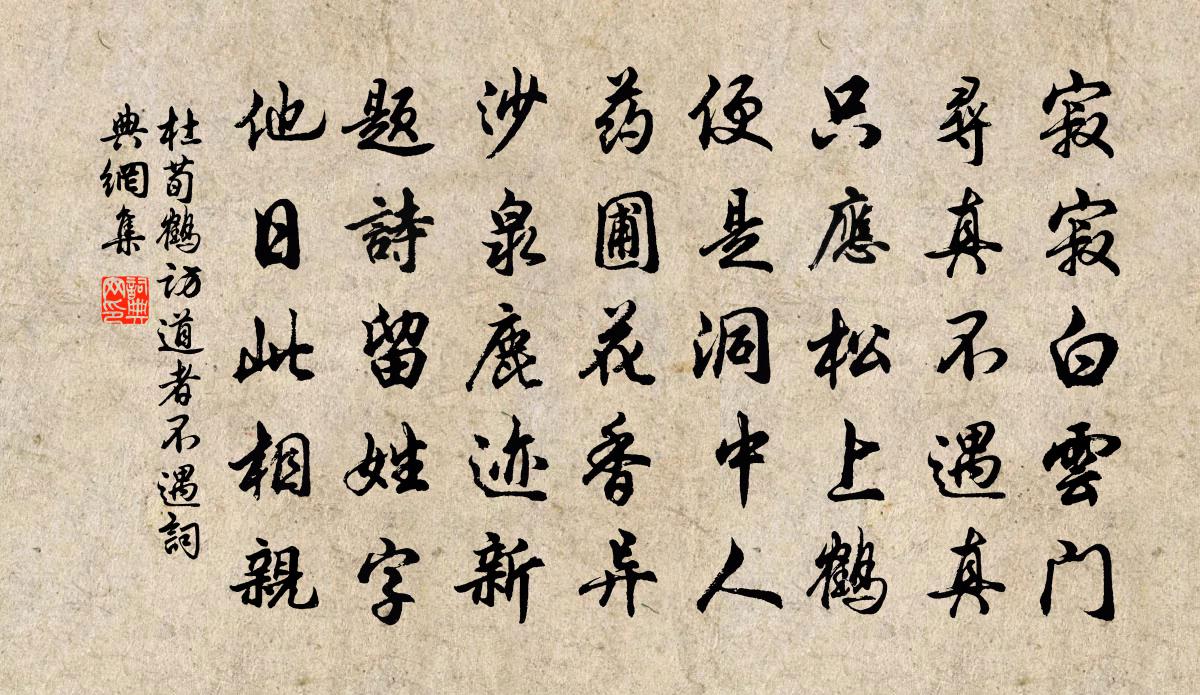 寂寂白雲门
尋真不遇真
只應松上鹤
便是洞中人
药圃花香异
沙泉鹿迹新
题詩留姓字
他日此相親
杜荀鶴訪道者不遇詞
典網集
詞典
网印